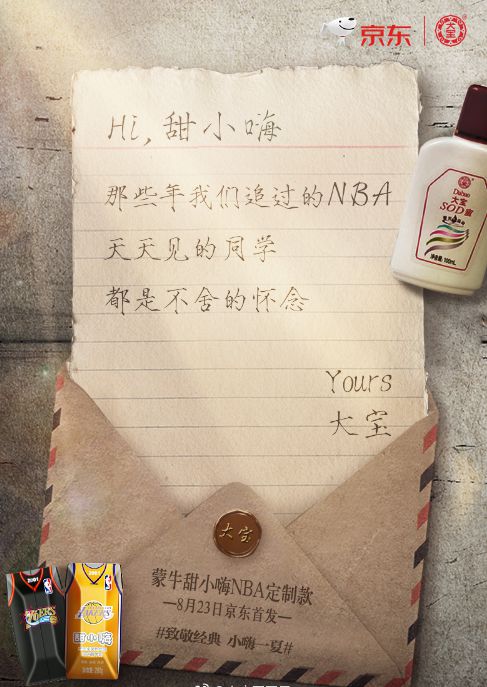 京东
大宝
Hi,甜小嗨
那些年我们追过的NBA
天天见的同学
都是不舍的怀念
Yours
大宝
Dabao
大宝
SOD蜜
净含量:100mL
大宝
蒙牛甜小嗨NBA定制款
—8月23日京东首发—
#致敬经典 小嗨一夏#
2001
76ERS
NBA
2001
LAKERS
NBA
甜小嗨